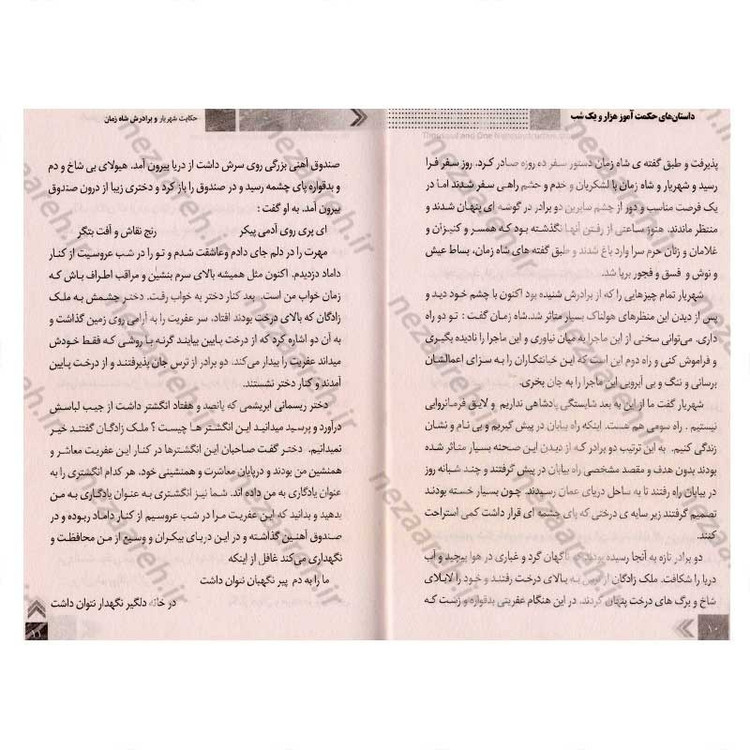 داستان‌های حکمت آموز هزار و یک شب
پذیرفت و طبق گفته ی شاه زمان دستور سفر ده روزه صادر کرد. روز سفر فرا
رسید و شهریار و شاه زمان با لشکریان و خدم و حشم راهی سفر شدند اما در
یک فرصت مناسب و دور از چشم سایرین دو برادر در گوشه ای پنهان شدند و
منتظر ماندند. هنوز ساعتی از رفتن آنها نگذشته بود که همسر و کنیزان و
غلامان و زنان حرم سرا وارد باغ شدند و طبق گفته های شاه زمان، بساط عیش
و نوش و فسق و فجور برپا شد.
شهریار تمام چیزهایی را که از برادرش شنیده بود اکنون با چشم خود دید و
پس از دیدن این منظرهای هولناک بسیار متاثر شد. شاه زمان گفت : تو دو راه
داری. می‌توانی سخنی از این ماجرا به میان نیاوری و این ماجرا را نادیده بگیری
و فراموش کنی و راه دوم این است که این خیانتکاران را به سزای اعمالشان
برسانی و ننگ و بی آبرویی این ماجرا را به جان بخری.
شهریار گفت ما از این به بعد شایستگی پادشاهی نداریم و لایق فرمانروایی
نیستیم . راه سومی هم هست. اینکه راه بیابان در پیش گیریم و بی نام و نشان
زندگی کنیم. به این ترتیب دو برادر که از دیدن این صحنه بسیار متاثر شده
بودند بدون هدف و مقصد مشخصی راه بیابان در پیش گرفتند و چند شبانه روز
در بیابان راه رفتند تا به ساحل دریای عمان رسیدند. چون بسیار خسته بودند
تصمیم گرفتند زیر سایه ی درختی که پای چشمه ای قرار داشت کمی استراحت
کنند.
دو برادر تازه به آنجا رسیده بودند که ناگهان گرد و غباری در هوا پیچید و آب
دریا را شکافت. ملک زادگان از ترس به بالای درخت رفتند و خود را لابلای
شاخ و برگ های درخت پنهان کردند. در این هنگام عفریتی بدقواره و زشت که
۱۰
حکایت شهریار و برادرش شاه زمان
صندوق آهنی بزرگی روی سرش داشت از دریا بیرون آمد. هیولای بی شاخ و دم
و بدقواره پای چشمه رسید و در صندوق را باز کرد و دختری زیبا از درون صندوق
بیرون آمد. به او گفت :
ای پری روی آدمی پیکر رنج نقاش و آفت بتگر
مهرت را در دلم جای دادم وعاشقت شدم و تو را در شب عروسیت از کنار
داماد دزدیدم. اکنون مثل همیشه بالای سرم بنشین و مراقب اطراف باش که
زمان خواب من است. بعد کنار دختر به خواب رفت. دختر چشمش به ملک
زادگان که بالای درخت بودند افتاد، سر عفریت را به آرامی روی زمین گذاشت و
به آن دو اشاره کرد که از درخت پایین بیایند گرنه با روشی که فقط خودش
میداند عفریت را بیدار می‌کند. دو برادر از ترس جان پذیرفتند و از درخت پایین
آمدند و کنار دختر نشستند.
دختر ریسمانی ابریشمی که پانصد و هفتاد انگشتر داشت از جیب لباسش
درآورد و پرسید میدانید این انگشتر ها چیست ؟ ملک زادگان گفتند خیر
نمیدانیم. دختر گفت صاحبان این انگشترها در کنار این عفریت معاشر و
همنشین من بودند و درپایان معاشرت و همنشینی خود، هر کدام انگشتری را به
عنوان یادگاری به من داده اند. شما نیز انگشتری به عنوان یادگاری به من
بدهید و بدانید که این عفریت مرا در شب عروسیم از کنار داماد ربوده و در
صندوق آهنین گذاشته و در این دریای بیکران و وسیع از من محافظت و
نگهداری می‌کند غافل از اینکه
ما را به دم پیر نگهبان نتوان داشت
در خانه دلگیر نگهدار نتوان داشت
۱۱
nezaareh.ir